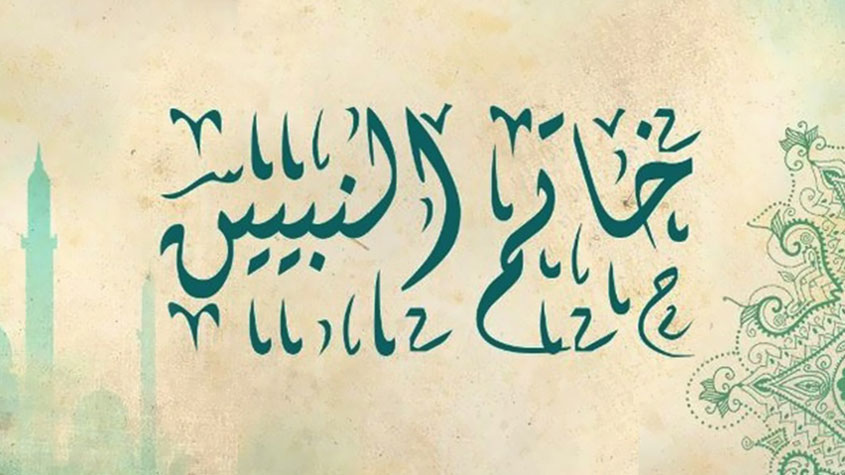 خاتم النبيين